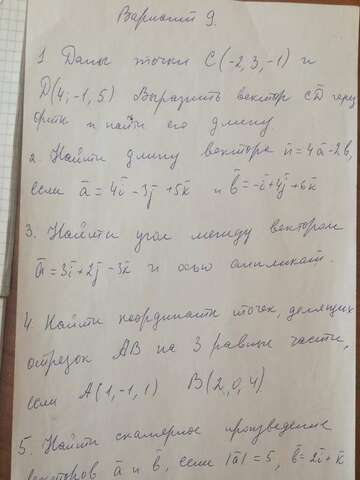 Вариант 9.
1 Даны точки C(-2, 3, -1) и
D(4, -1, 5) Выразить вектор C̄D̄ через
орты и найти его длину
2. Найти длину вектора n̄ = 4ā - 2b̄,
если ā = 4ī - 3j̄ + 5k̄ и b̄ = -ī + 4j̄ + 6k̄
3. Найти угол между вектором
ā = 3ī + 2j̄ - 3k̄ и осью аппликат.
4 Найти координаты точек, делящих
отрезок AB на 3 равные части,
если A(1, -1, 1) B(2, 0, 4)
5. Найти скалярное произведение
векторов ā и b̄, если |ā| = 5, b̄ = 2ī + k̄